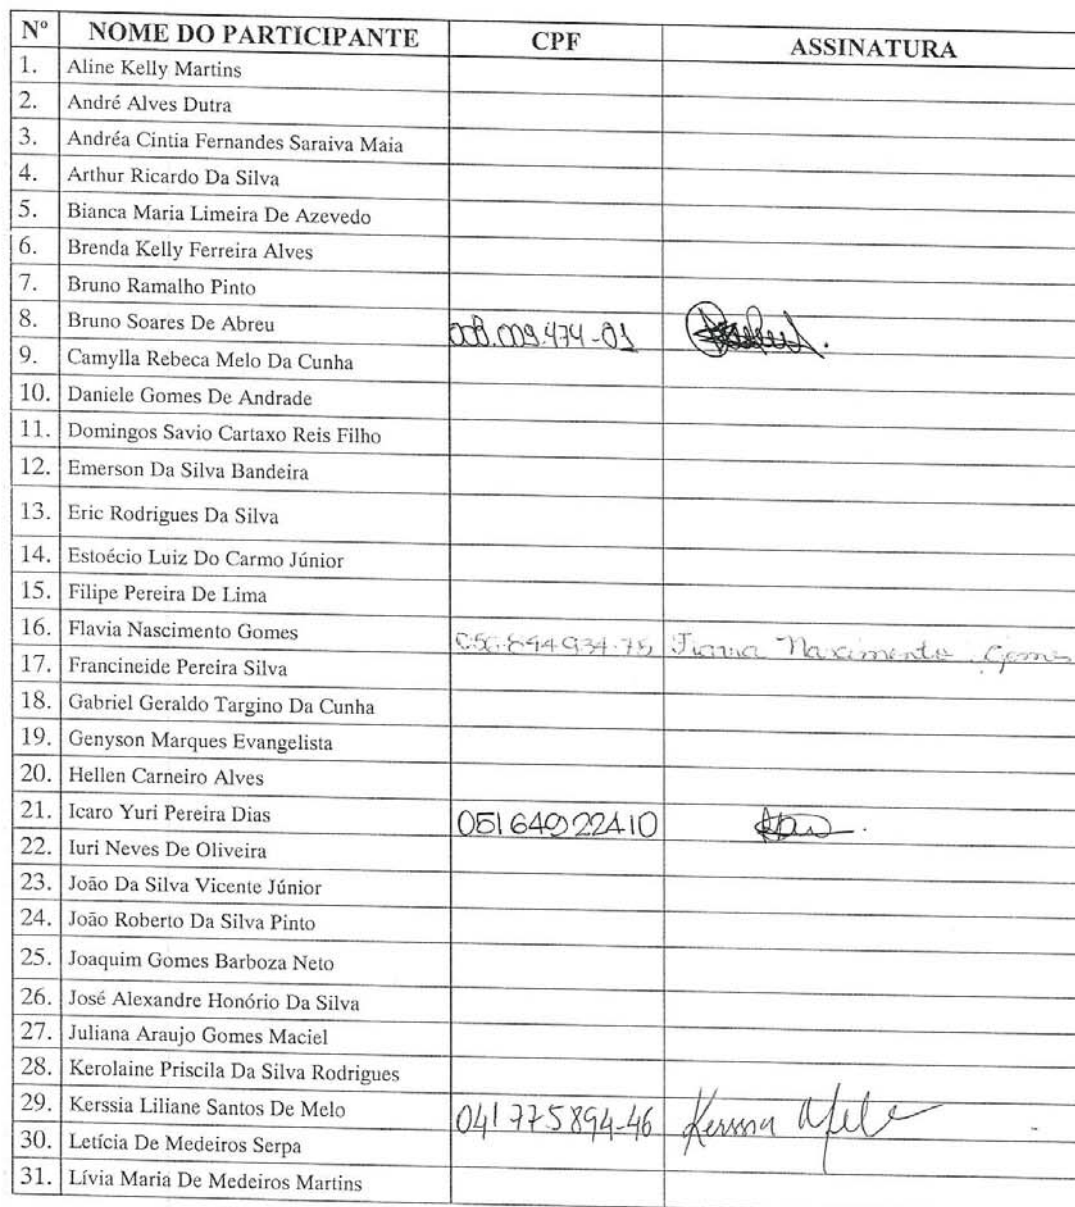 Nº NOME DO PARTICIPANTE CPF ASSINATURA
1. Aline Kelly Martins
2. André Alves Dutra
3. Andréa Cintia Fernandes Saraiva Maia
4. Arthur Ricardo Da Silva
5. Bianca Maria Limeira De Azevedo
6. Brenda Kelly Ferreira Alves
7. Bruno Ramalho Pinto
8. Bruno Soares De Abreu 008.009.474-01
9. Camylla Rebeca Melo Da Cunha
10. Daniele Gomes De Andrade
11. Domingos Savio Cartaxo Reis Filho
12. Emerson Da Silva Bandeira
13. Eric Rodrigues Da Silva
14. Estoécio Luiz Do Carmo Júnior
15. Filipe Pereira De Lima
16. Flavia Nascimento Gomes Nascimento Gomes
17. Francineide Pereira Silva
18. Gabriel Geraldo Targino Da Cunha
19. Genyson Marques Evangelista
20. Hellen Carneiro Alves
21. Icaro Yuri Pereira Dias 05164922410
22. Iuri Neves De Oliveira
23. João Da Silva Vicente Júnior
24. João Roberto Da Silva Pinto
25. Joaquim Gomes Barboza Neto
26. José Alexandre Honório Da Silva
27. Juliana Araujo Gomes Maciel
28. Kerolaine Priscila Da Silva Rodrigues
29. Kerssia Liliane Santos De Melo 041775894-46 Kerssia Melo
30. Letícia De Medeiros Serpa
31. Lívia Maria De Medeiros Martins